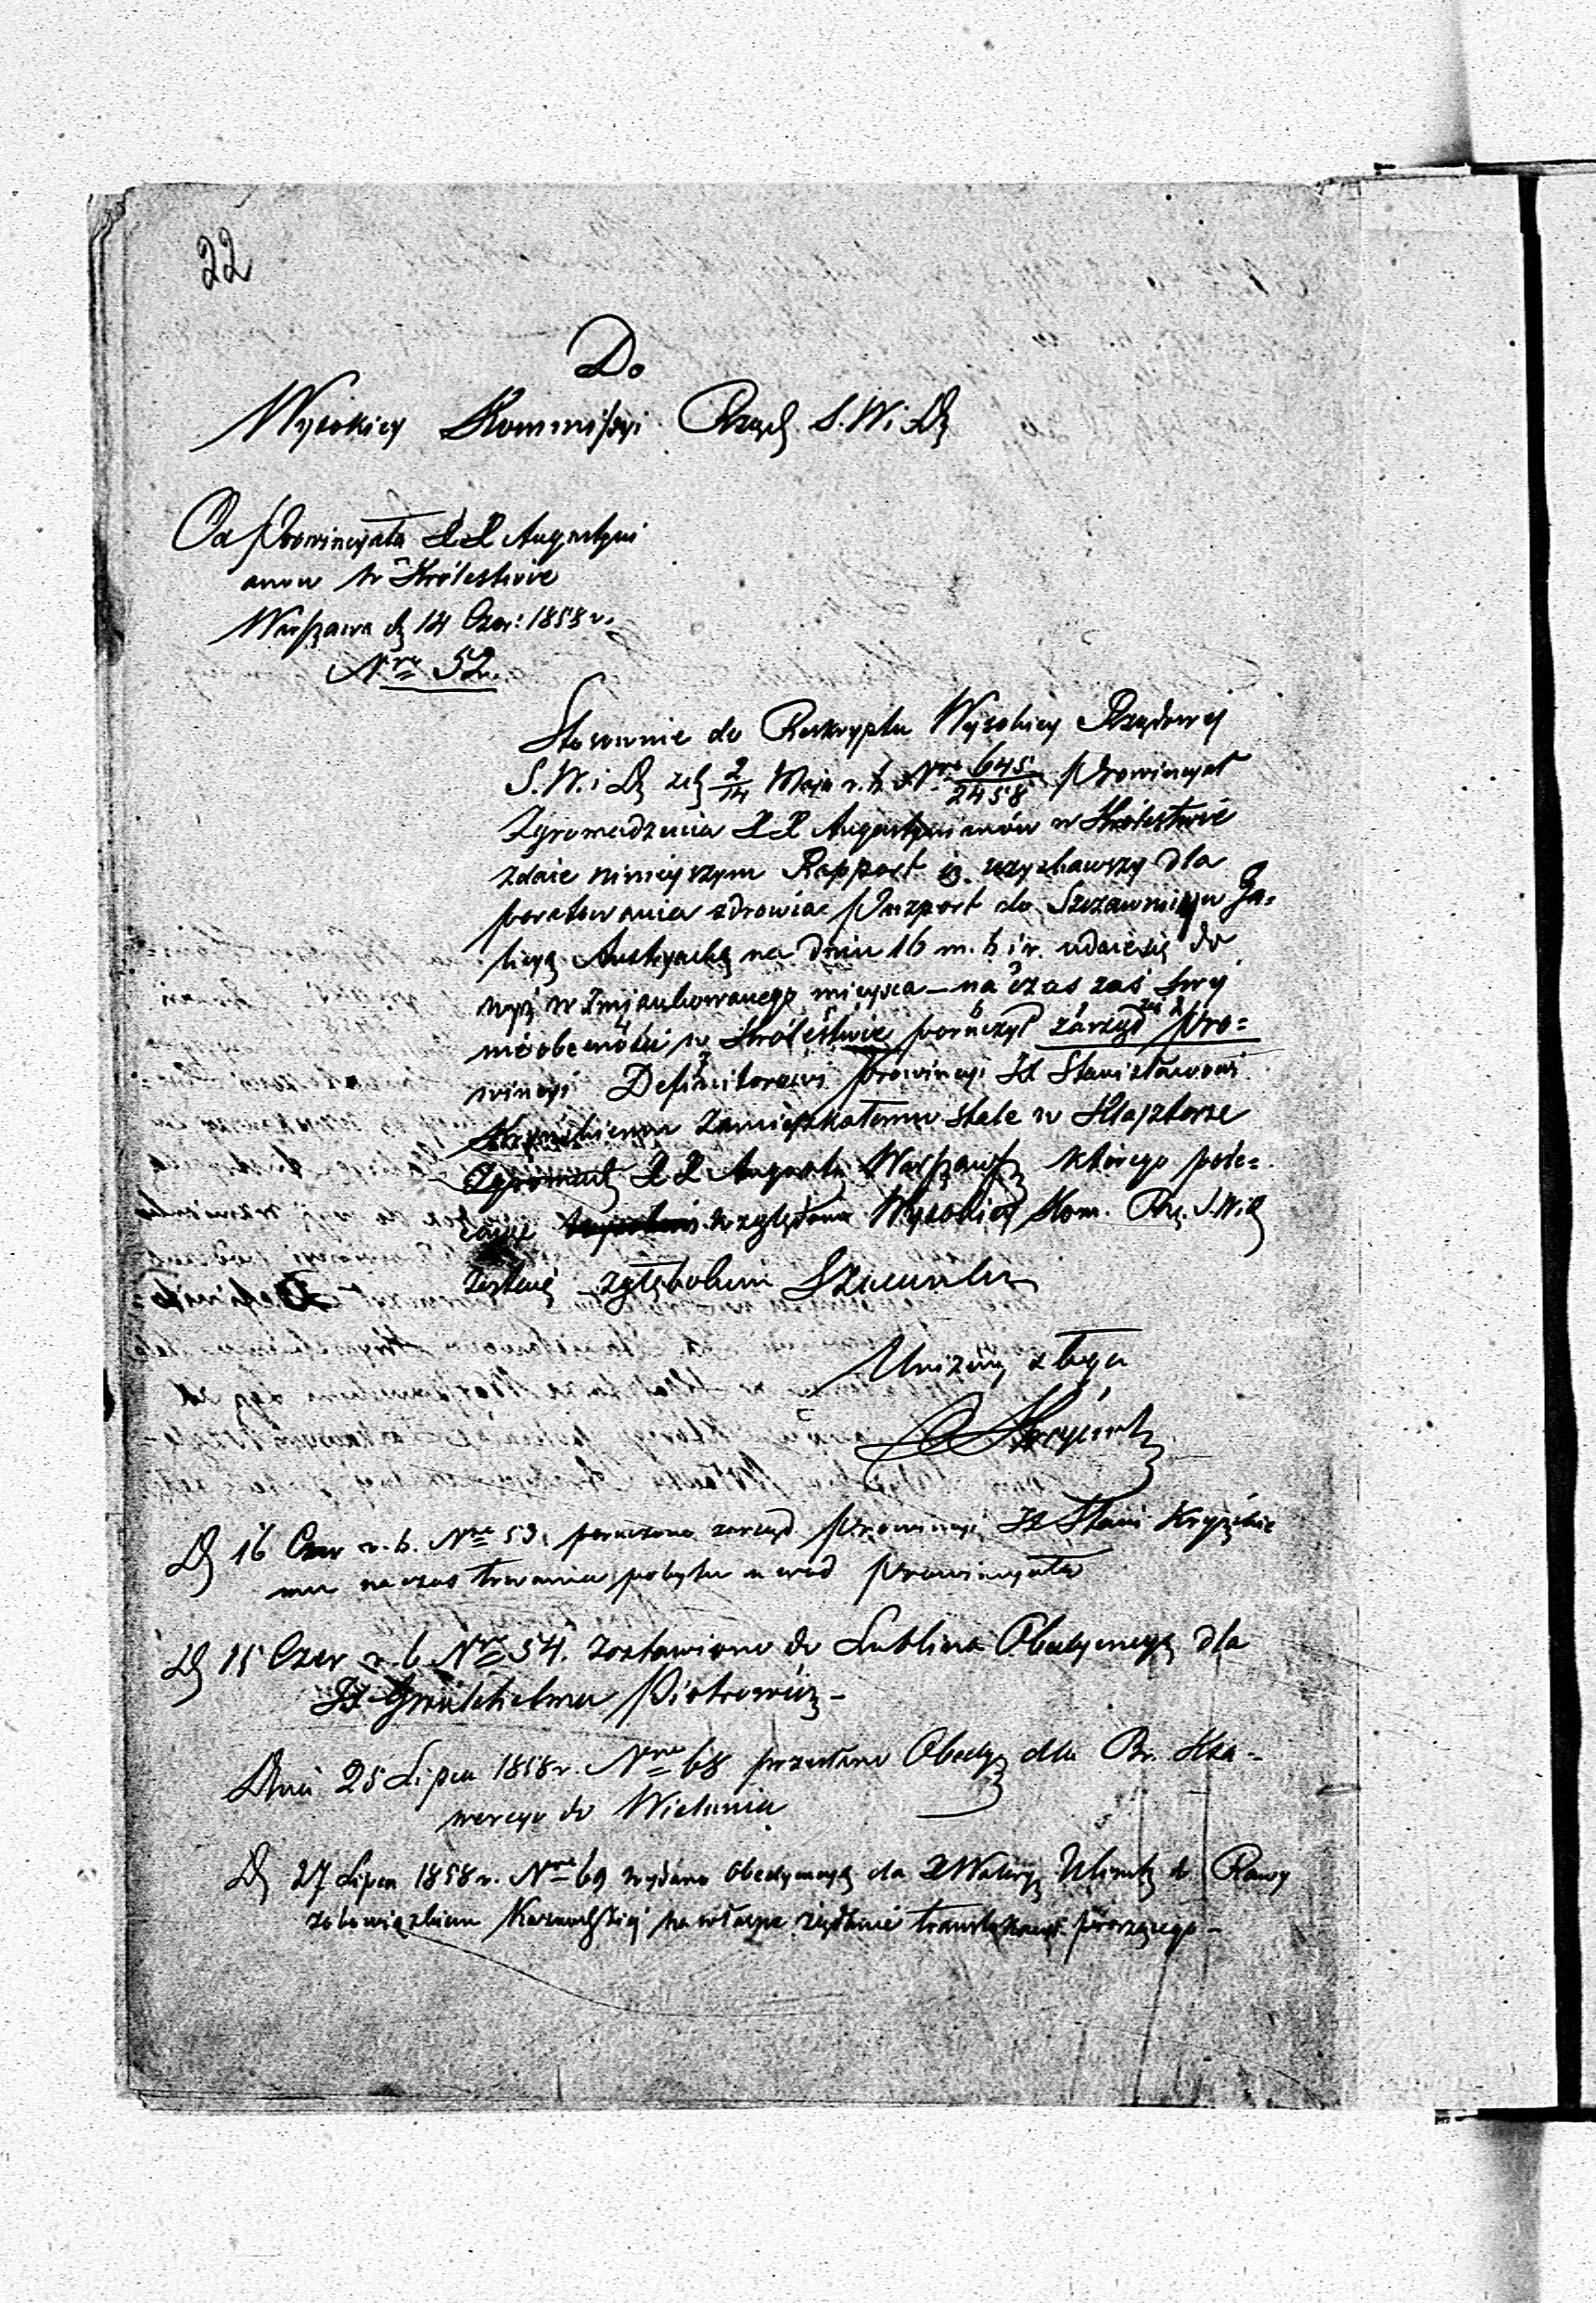 22
Do
Wysokiey Kommissyi Rząd. S. W. i D.
Od Prowincyała XX Augustyni
anow w Królestwie
Warszawa d. 14 Czer: 1858 r.
Nro 52.
Stosownie do Reskryptu Wysokiey Rządowej
S. W. i D. z d. 2/14 Maja r. b. Nro 645/2458 Prowincyał
Zgromadzenia XX Augustynianów w Królestwie
zdaie niniejszym Rapport iż uzyskawszy dla
poratowania zdrowia Paszport do Szczawnicy w Ga=
licyą Austryacką na dniu 16 m. b. i r. udaie się do
wyż w miejsca – na czas zaś swej
nieobecności w Królestwie poruczył zarząd Pro=
wincyi Definitorowi Prowincyi X Stanisławowi
zamieszkałemu stale w Klasztorze
XX August. Warszaw. którego pole=
caiąc względom Wysokiey Kom. Rz. S. W. i D.
zostaię z głębokim Szacunkiem
Uniżony sługa
D. 16 Czer r. b. Nro 53. poruczono zarząd Prowincyi X Stani
mu na czas trwania pobytu u wód Prowincyała
D. 15 Czer r. b. Nro 54. zostawiono do Lublina Obedyencyą dla
X Piotrowicz –
Dnia 25 Lipca 1858 r. Nro 68 przesłano Obedy. dla Br. Ksa=
werego do Wielunia
D. 27 Lipca 1858 r. Nro 69 wydano Obedyencyą dla X do Rawy
z obowiązkiem na własne żądanie